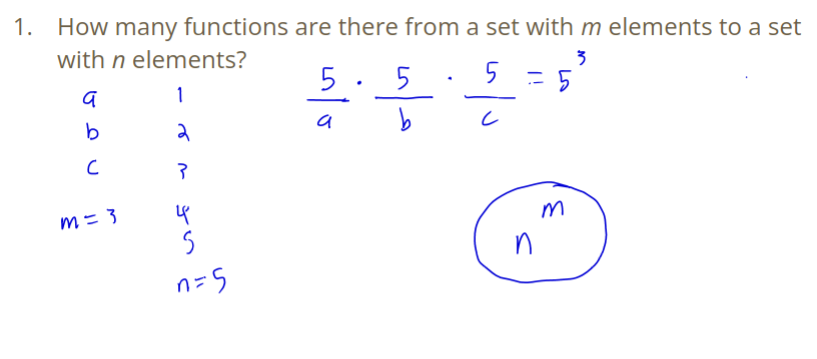 1. How many functions are there from a set with m elements to a set
with n elements?
5/a · 5/b · 5/c = 5³
a 1
b 2
c 3
m = 3 4
5
n = 5
nᵐ